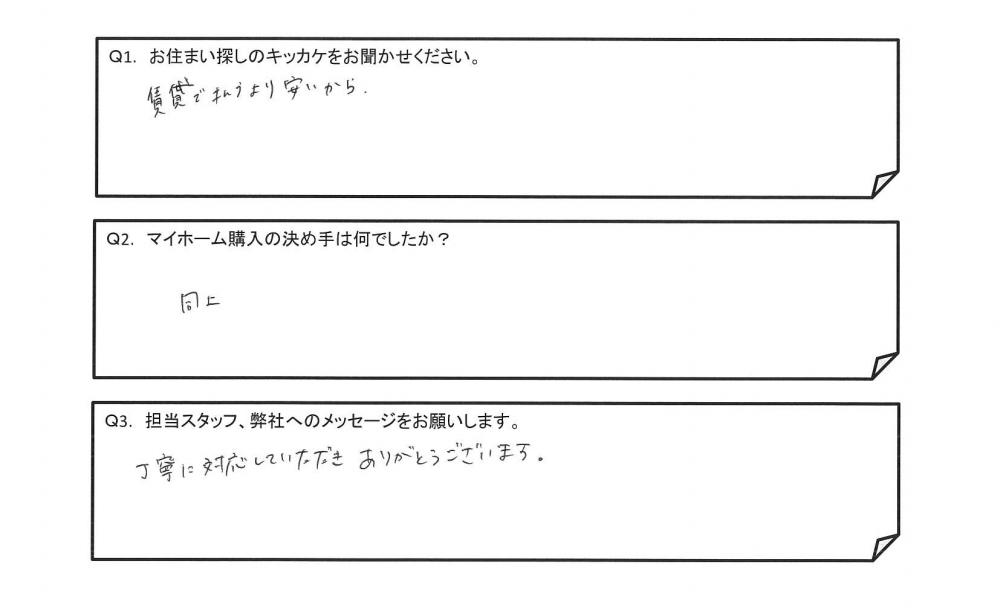 Q1. お住まい探しのキッカケをお聞かせください。
賃貸で払うより安いから.
Q2. マイホーム購入の決め手は何でしたか？
同上
Q3. 担当スタッフ、弊社へのメッセージをお願いします。
丁寧に対応していただき ありがとうございます。